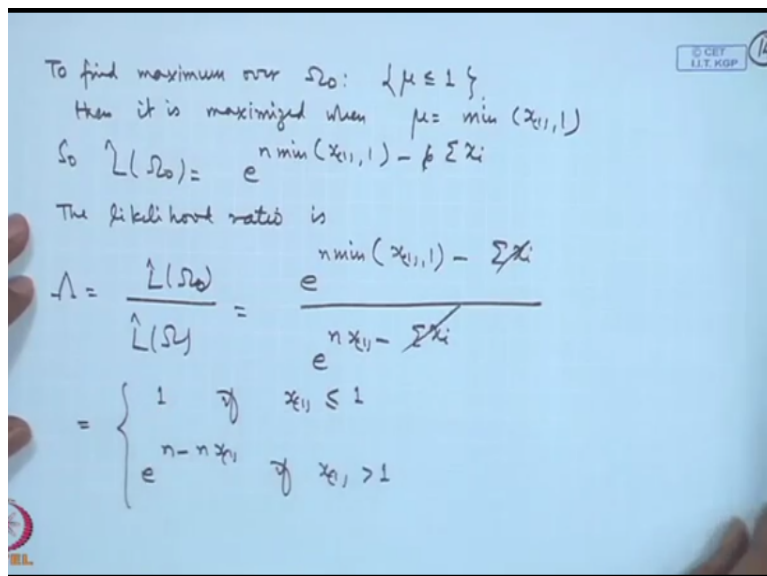 © CET
I.I.T. KGP
14
To find maximum over Ω0: {μ ≤ 1}
then it is maximized when μ = min (x(1), 1)
So L̂(Ω0) = e^{n min (x(1), 1) - Σxi}
The likelihood ratio is
Λ = L̂(Ω0) / L̂(Ω) = e^{n min (x(1), 1) - Σxi} / e^{n x(1) - Σxi}
= { 1 if x(1) ≤ 1
e^{n - n x(1)} if x(1) > 1